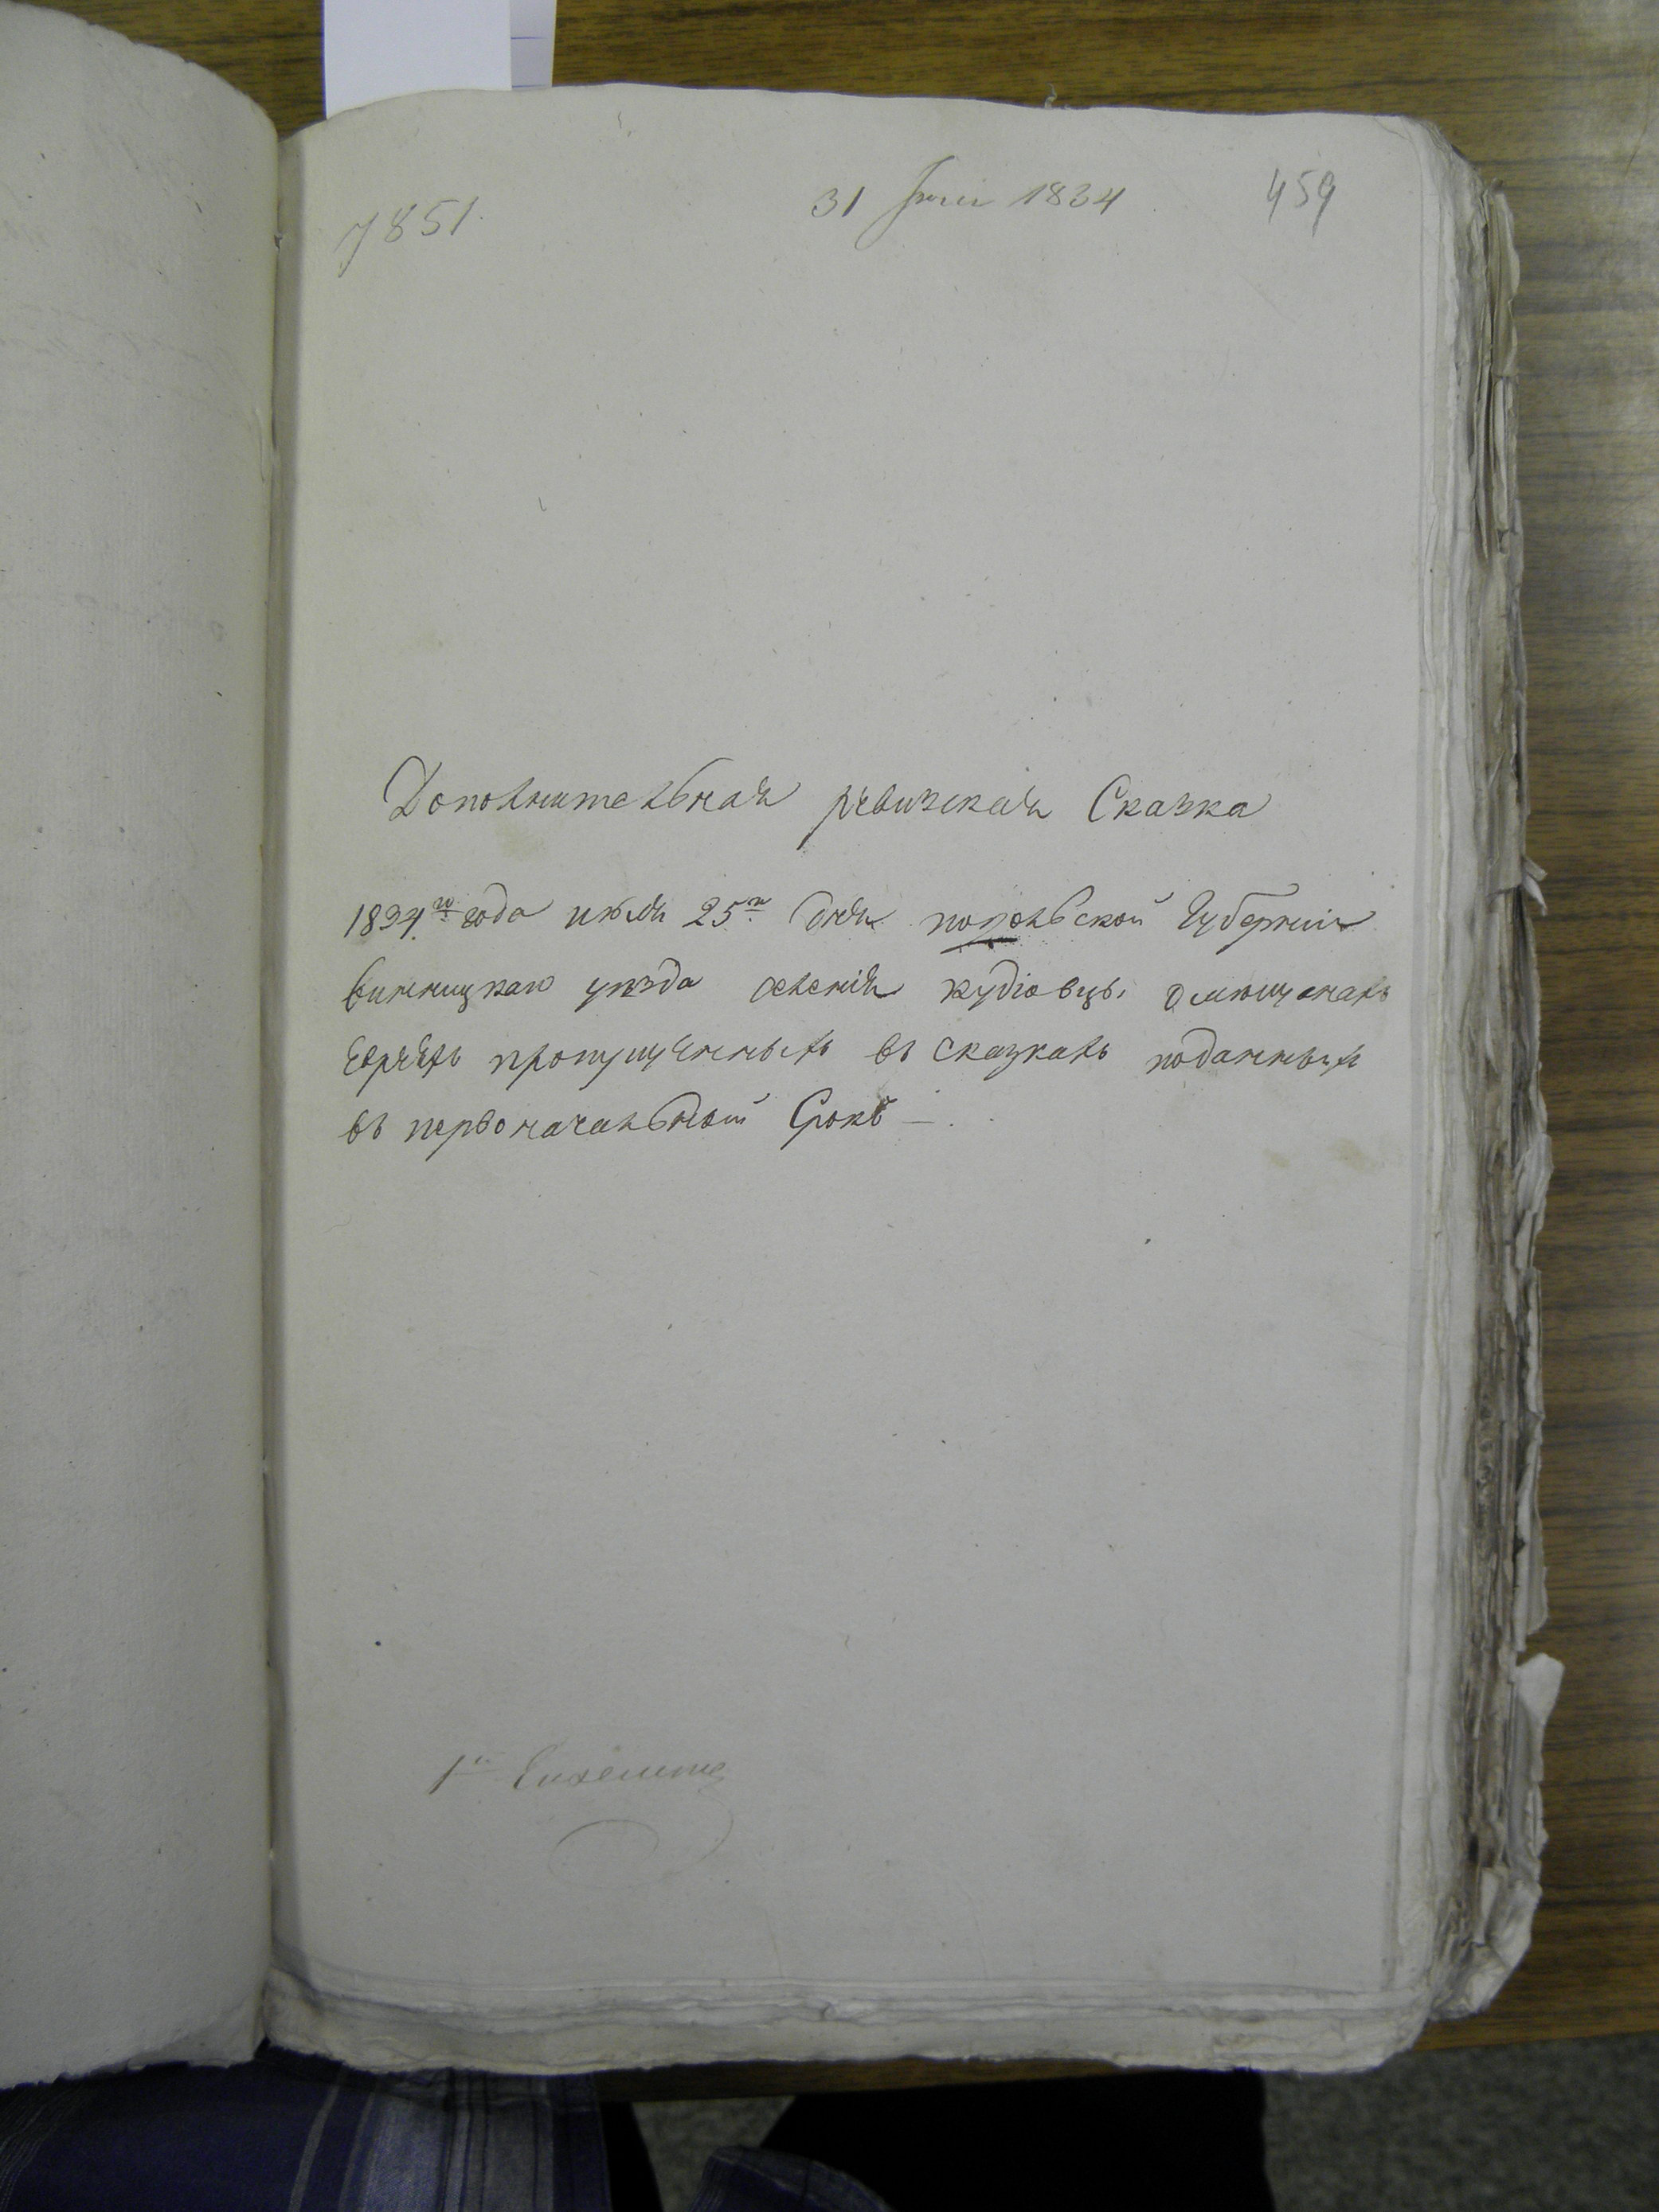 7851.
31 Іюля 1834
459
Дополнительная ревизская Сказка
1834го года июля 25го дня подольской Губерніи
винницкаго уезда селенія кудіовцы о мещанахъ
евреяхъ пропущенныхъ въ сказкахъ поданныхъ
въ первоначальный Срокъ —.